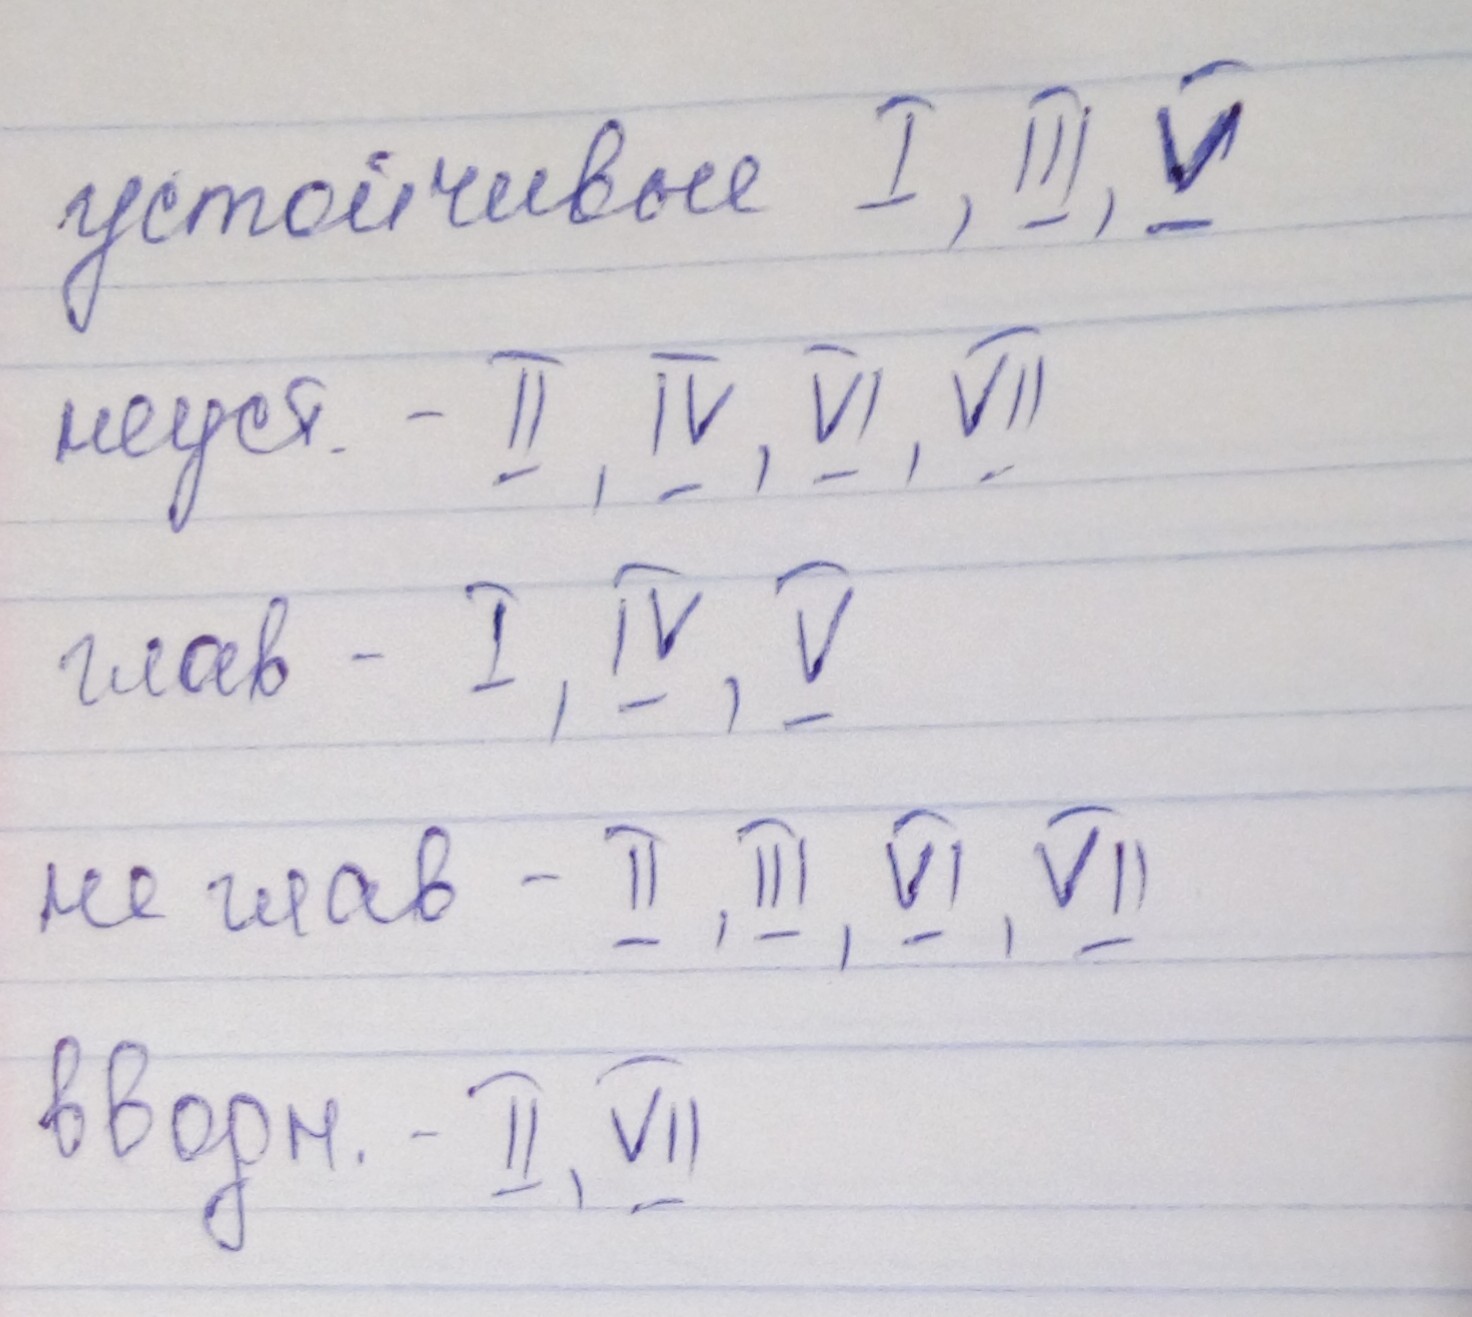 устойчивые I, III, V
неуст. - II, IV, VI, VII
глав - I, IV, V
не глав - II, III, VI, VII
вводн. - II, VII